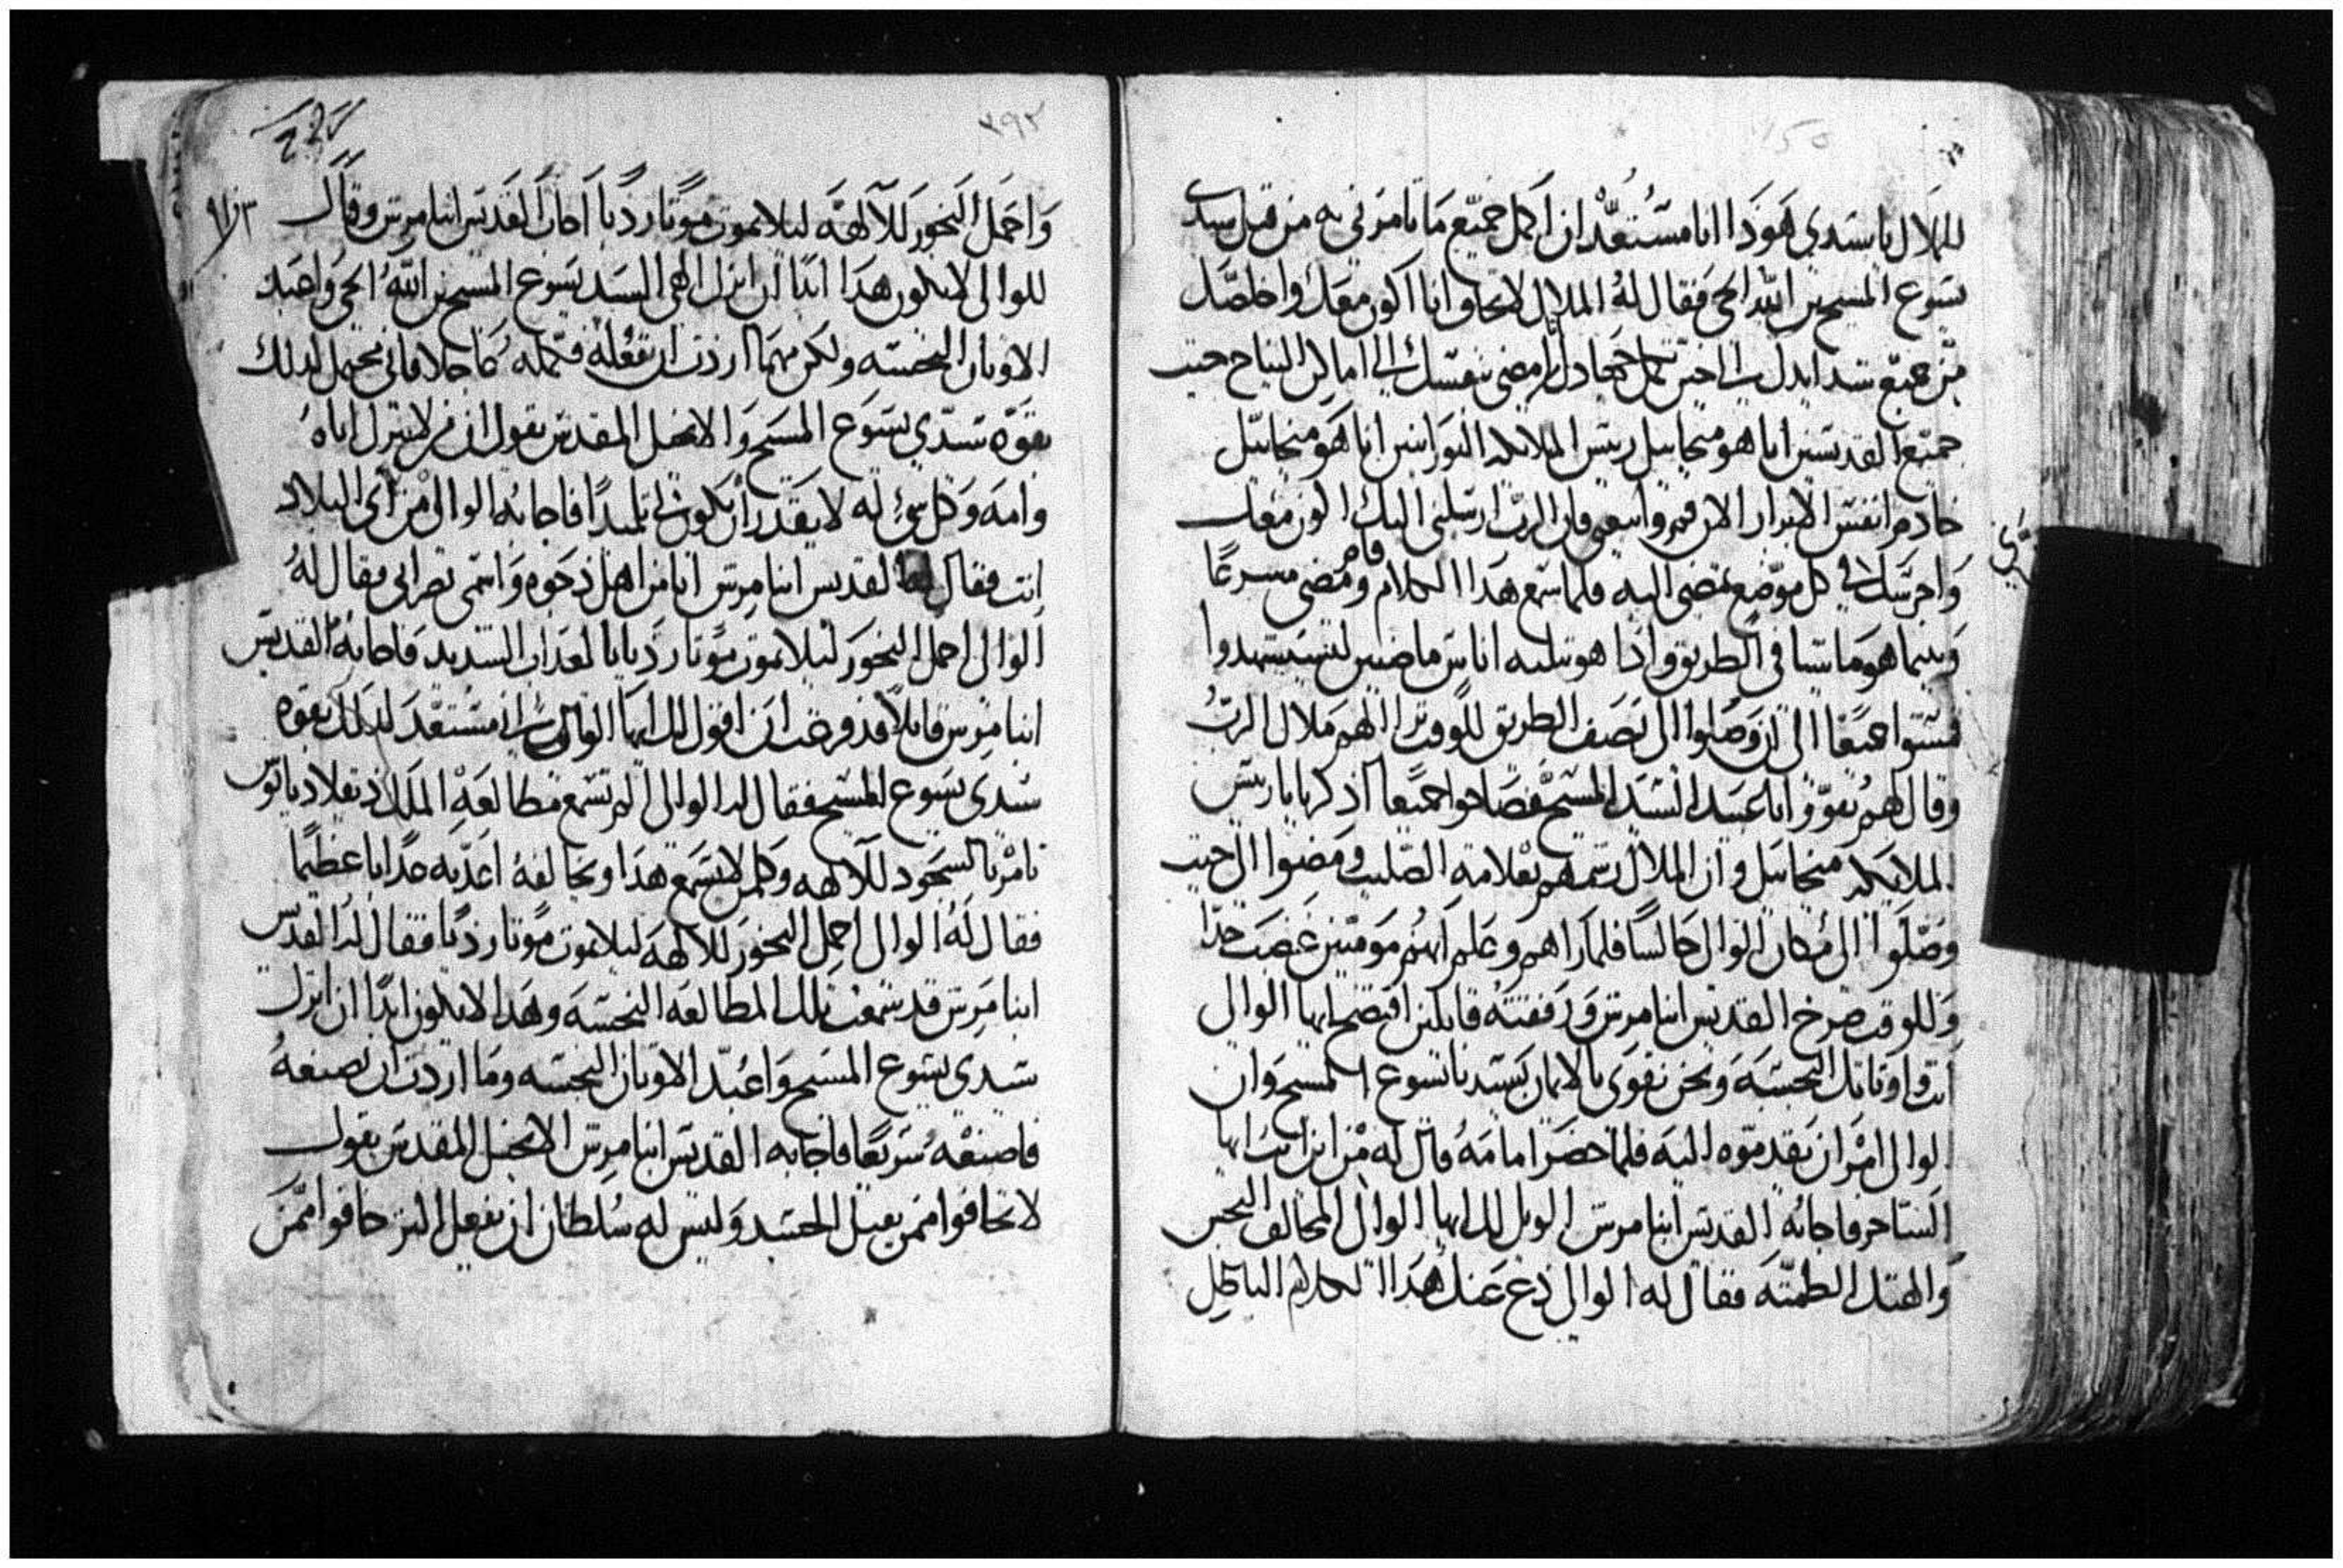 للملاك يا سيدي هوذا انا مستعد ان اكمل جميع ما تامرني به من قبل سيدي
يسوع المسيح بن الله الحي فقال له الملاك لا تخاف انا اكون معك واخلصك
من جميع شدايدك الى حين تكمل جهادك وامضي بنفسك الى اماكن النياح حيث
جميع القديسين انا هو ميخاييل ريس الملايكه النورانيين انا هو ميخاييل
خادم انفس الابرار الان قم واتبعني فان الرب ارسلني اليك اكون معك
واحرسك في كل موضع تمضي اليه فلما سمع هذا الكلام قام ومضى مسرعا
وبينما هو ماشيا في الطريق واذا هو بثلثه اناس ماضيين ليستشهدوا
فمشوا جميعا الى ان وصلوا الى نصف الطريق للوقت ترااا لهم ملاك الرب
وقال لهم تقووا يا عبيد السيد المسيح فصاحوا جميعا اذكرنا يا ريس
الملايكه ميخاييل وان الملاك رشمهم بعلامة الصليب ومضوا الى حيث
وصلوا الى مكان الوالي جالسا فلما راهم وعلم انهم مومنين غضب جدا
وللوقت صرخ القديس انبا مرس ورفقته قايلين افتضح ايها الوالي
انت واوثانك النجسه ونحن نقوى بالايمان بسيدنا يسوع المسيح وان
الوالي امر ان يقدموه اليه فلما حضر امامه قال له من اين انت ايها
الساحر فاجابه القديس انبا مرس الويل لك ايها الوالي المخالف النجس
والهتك الطمثه فقال له الوالي دع عنك هذا الكلام الباطل
٣٩٢
واحمل البخور للالهه ليلا تموت موتا رديا اجاب القديس انبا مرس وقال
للوالي لا يكون هذا ابدا ان اترك الهي السيد يسوع المسيح بن الله الحي واعبد
الاوثان النجسه ولكن مهما اردت ان تفعله فتمله عاجلا فاني محتمل لذلك
بقوة سيدي يسوع المسيح والانجيل المقدس يقول ان من لا يترك اباه
وامه وكل شي له لا يقدر ان يكون لي تلميدا فاجابه الوالي من اي البلاد
انت فقال له القديس انبا مرس انا من اهل دجوه واسمي نصراني فقال له
الوالي احمل البخور ليلا تموت موتا رديا بالعذاب الشديد فاجابه القديس
انبا مرس قايلا قد فرغت ان اقول لك ايها الوالي اني مستعد لذلك بقوة
سيدي يسوع المسيح فقال له الوالي الم تسمع مطالعة الملك دقلاديانوس
تامر بالسجود للالهه وكلمن لا يسمع هذا ويخالفه اعذبه عذابا عظيما
فقال له الوالي احمل البخور للالهه ليلا تموت موتا رديا فقال له القديس
انبا مرس قد سمعت تلك المطالعه النجسه وهذا لا يكون ابدا ان اترك
سيدي يسوع المسيح واعبد الاوثان النجسه وما اردت ان تصنعه
فاصنعه سريعا فاجابه القديس انبا مرس الانجيل المقدس يقول
لا تخافوا ممن يقتل الجسد وليس له سلطان ان يفعل اكثر خافوا ممن